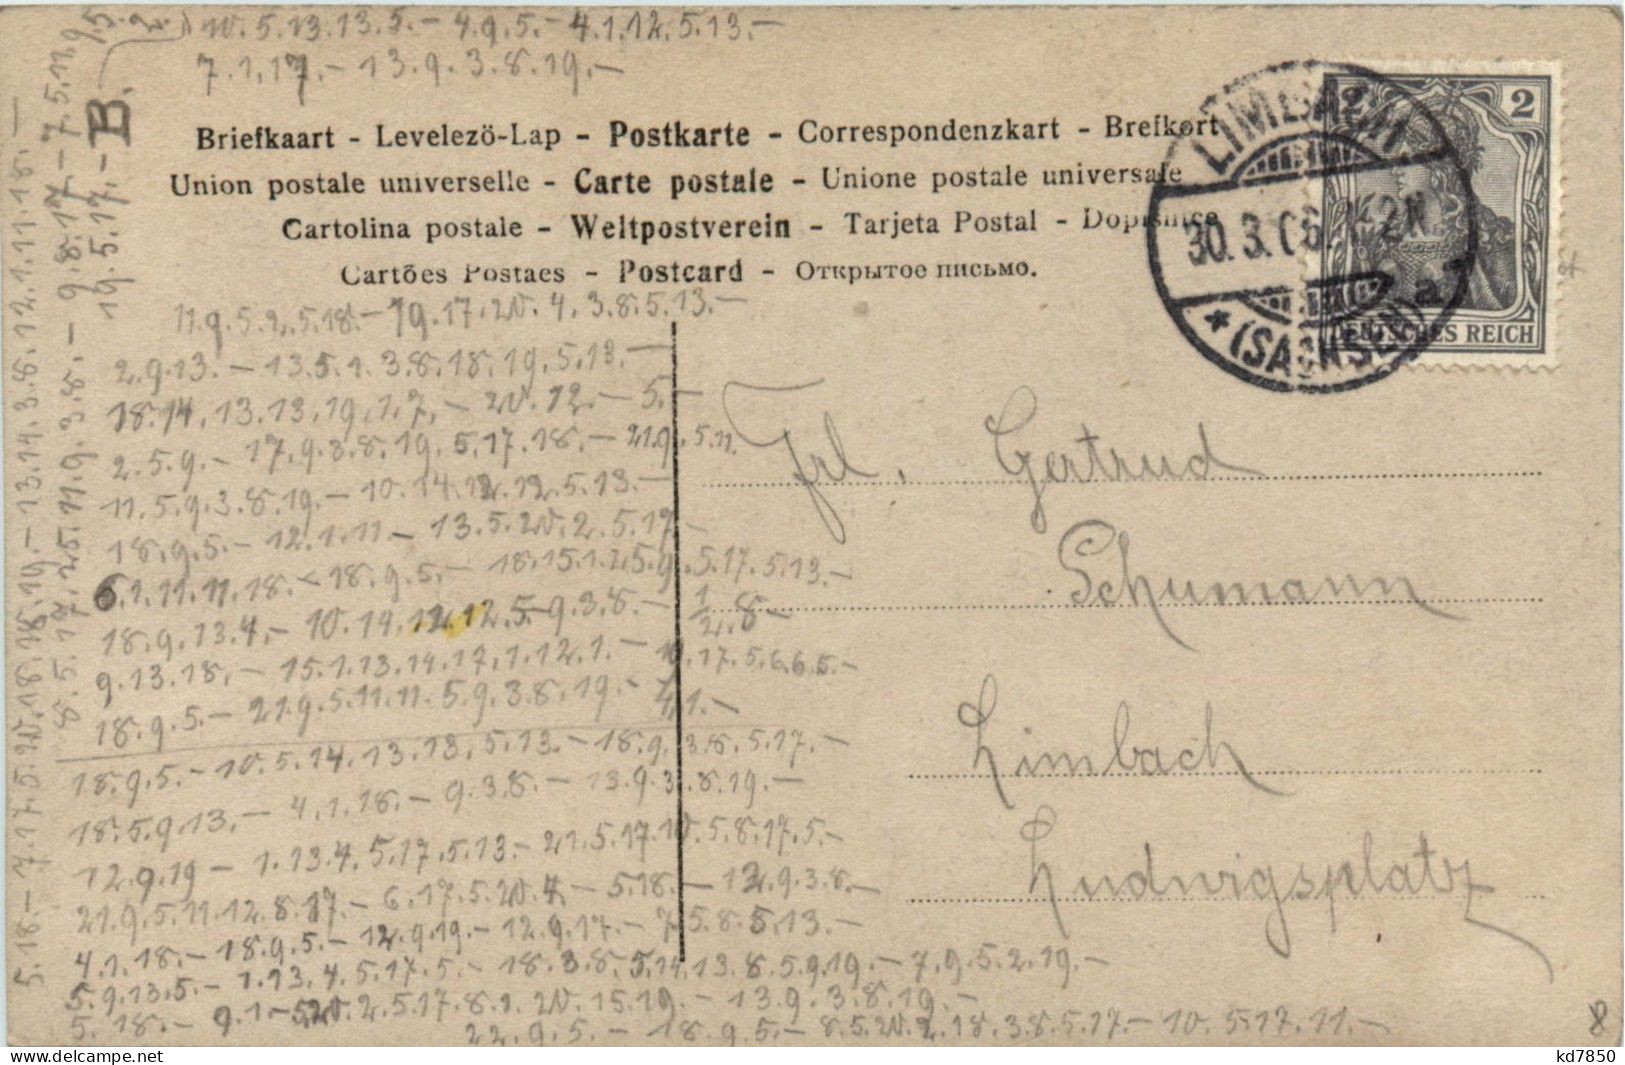 2.) 20.5.13.13.5.- 4.9.5.- 4.1.12.5.13.-
7.1.17.- 13.9.3.8.19.-
Briefkaart - Levelező-Lap - Postkarte - Correspondenzkart - Brefkort
Union postale universelle - Carte postale - Unione postale universale
Cartolina postale - Weltpostverein - Tarjeta Postal - Dopisnice
Cartões Postaes - Postcard - Открытое письмо.
11.9.5.2.5.18.- 19.17.20.4.3.8.5.13.-
2.9.13.- 13.5.1.3.8.18.19.5.13.-
18.14.13.13.19.1.7.- 20.12.- 5.-
2.5.9.- 17.9.3.8.19.5.17.18.- 21.9.5.11.
11.5.9.3.8.19.- 10.14.12.12.5.13.-
18.9.5.- 12.1.11.- 13.5.20.2.5.17.-
6.1.11.11.18.- 18.9.5.- 18.15.1.2.5.9.5.17.5.13.-
18.9.13.4.- 10.14.12.12.5.- 9.3.8.- 1/2.8-
9.13.18.- 15.1.13.14.17.1.12.1.- 19.17.5.6.6.5.-
18.9.5.- 21.9.5.11.11.5.9.3.8.19.- 4.1.-
18.9.5.- 10.5.14.13.13.5.13.- 18.9.3.8.5.17.-
18.5.9.13.- 4.1.18.- 9.3.8.- 13.9.3.8.19.-
12.9.19- 1.13.4.5.17.5.13.- 21.5.17.10.5.8.17.5.-
21.9.5.11.12.8.17.- 6.17.5.20.4.- 5.18.- 12.9.3.8.-
4.1.18.- 18.9.5.- 12.9.19.- 12.9.17.- 7.5.8.5.13.-
5.9.13.5.- 1.13.4.5.17.5.- 18.3.8.5.14.13.8.5.9.19.- 7.9.5.2.19.-
5.18.- 9.1.- 20.2.5.17.8.1.20.15.19.- 13.9.3.8.19.-
22.9.5.- 18.9.5.- 8.5.20.2.18.3.8.5.17.- 10.5.17.11.-
5.18.- 7.17.5.20.18.18.19.- 13.14.3.8.12.1.11.18.-
8.5.17.25.11.9.3.8.- 9.8.17.- 7.5.11.9.
19.5.17.- B.
LIMBACH
30.3.06. 12N.
* (SACHSEN) a
2 2
DEUTSCHES REICH
Frl. Gertrud
Schumann
Limbach
Ludwigsplatz
8
kd7850